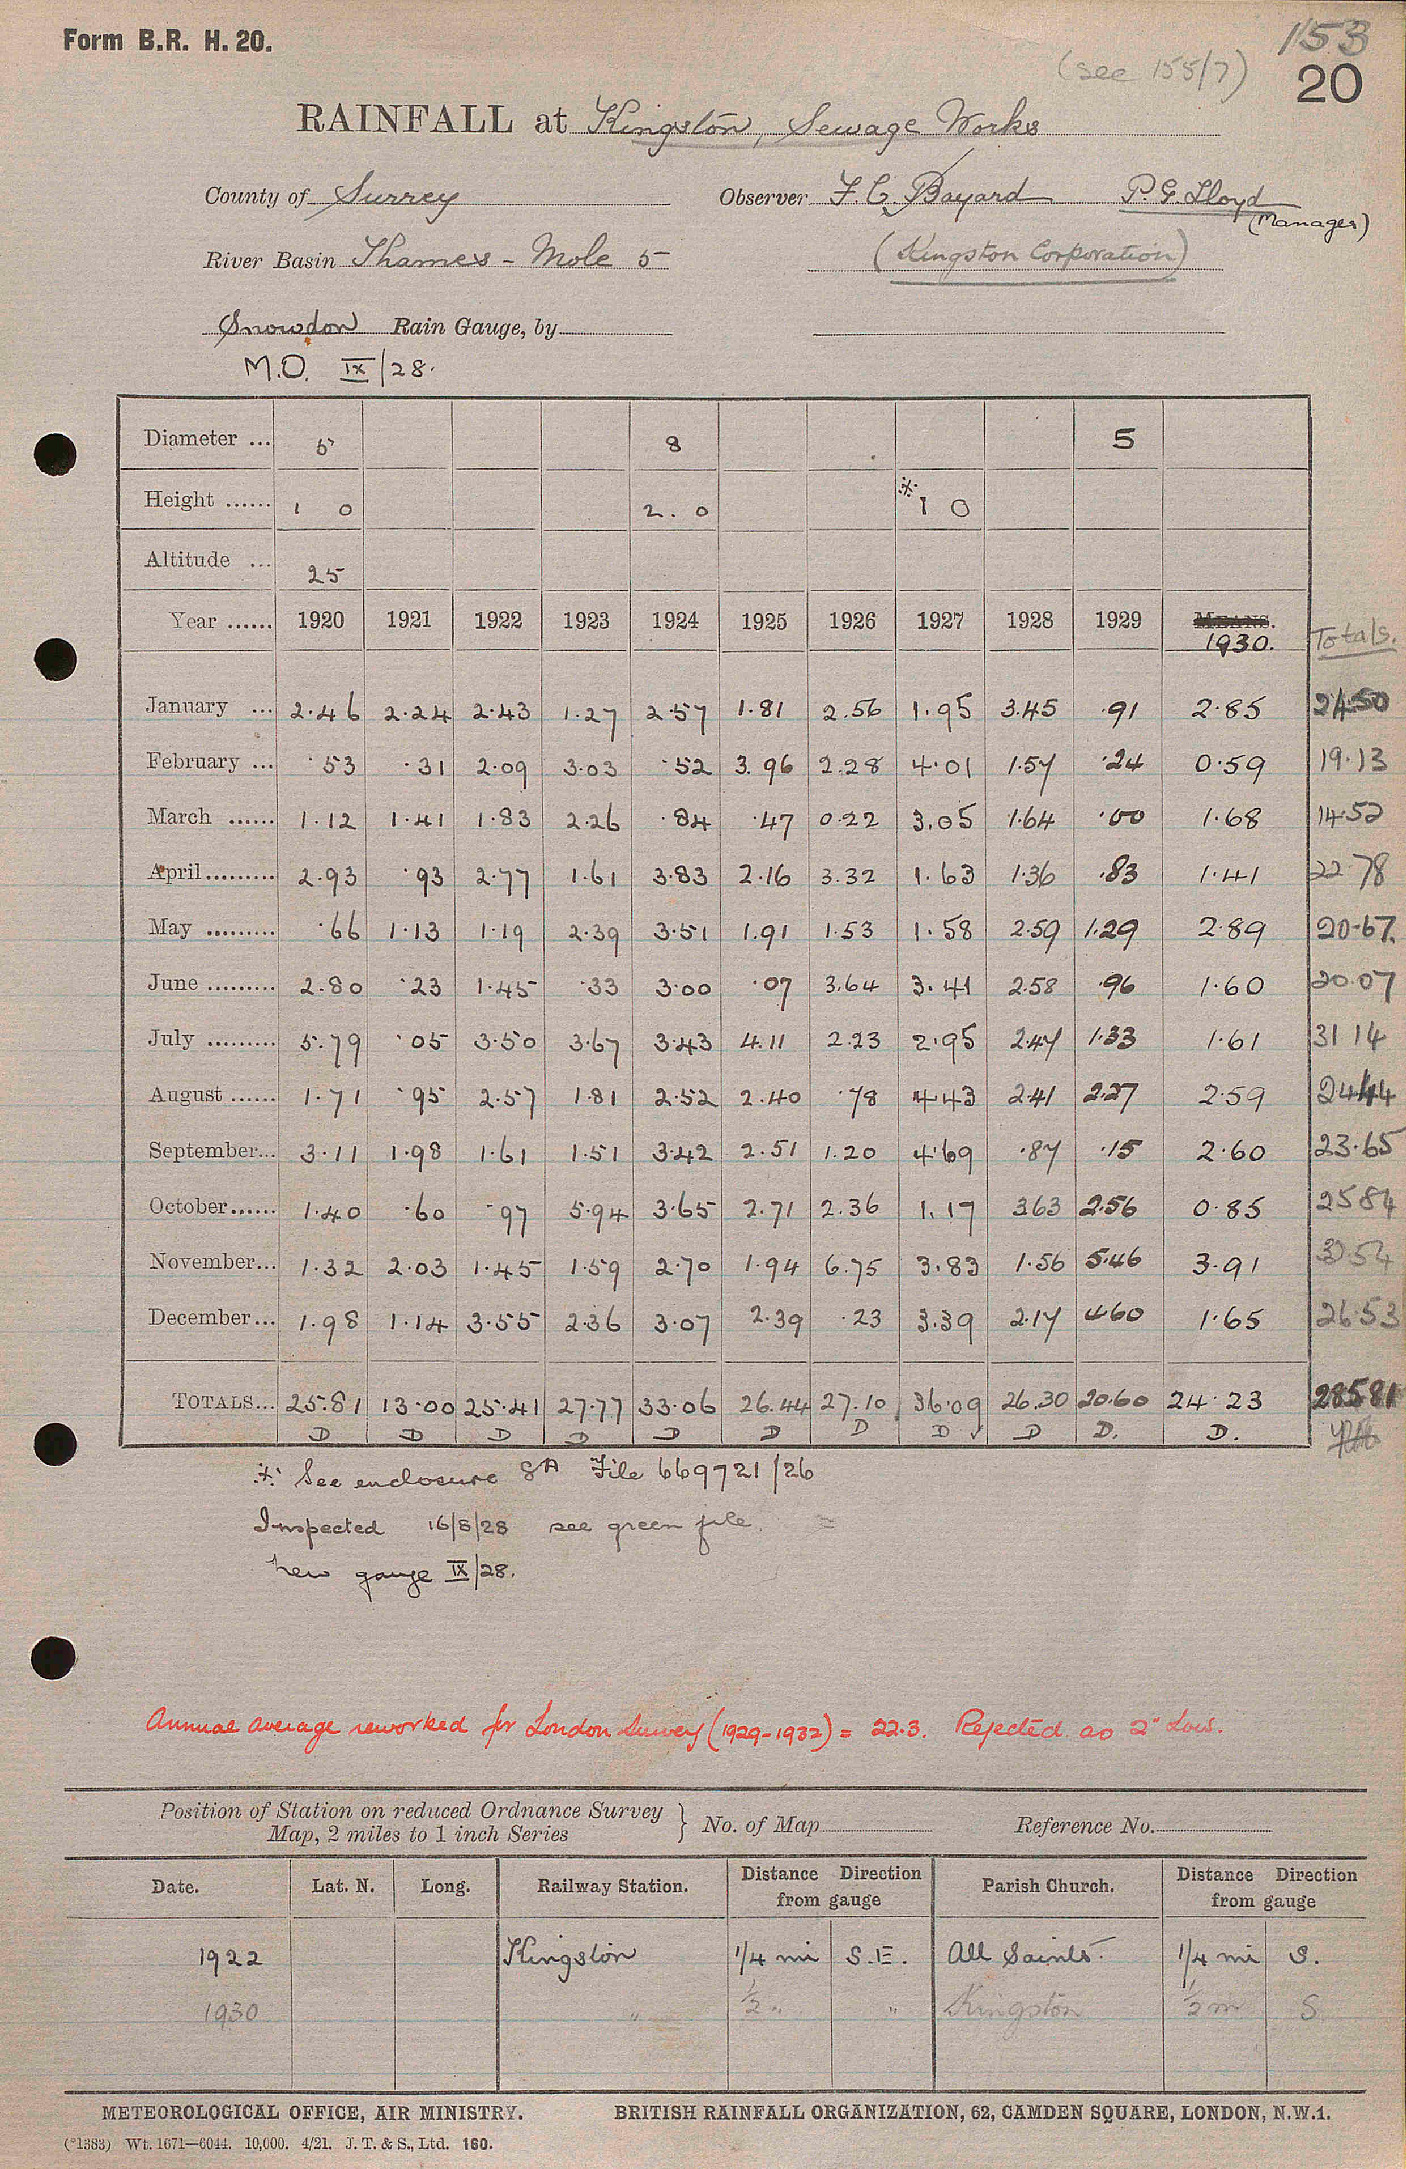 Form B.R. H. 20.
153
(see 155/7)
20
RAINFALL at Kingston, Sewage Works
County of Surrey Observer F C Bayard P. G. Lloyd
(Manager)
River Basin Thames - Mole 5 (Kingston Corporation)
Snowdon Rain Gauge, by
M.O. IX/28.
Diameter ... 5 8 5
Height ...... 1 0 2. 0 * 1 0
Altitude ... 25
Year ...... 1920 1921 1922 1923 1924 1925 1926 1927 1928 1929 MEANS. 1930. Totals.
January ... 2.46 2.24 2.43 1.27 2.57 1.81 2.56 1.95 3.45 .91 2.85 24.50
February ... .53 .31 2.09 3.03 .52 3.96 2.28 4.01 1.57 .24 0.59 19.13
March ...... 1.12 1.41 1.83 2.26 .84 .47 0.22 3.05 1.64 .00 1.68 14.52
April......... 2.93 .93 2.77 1.61 3.83 2.16 3.32 1.63 1.36 .83 1.41 22.78
May ......... .66 1.13 1.19 2.39 3.51 1.91 1.53 1.58 2.59 1.29 2.89 20.67
June ......... 2.80 .23 1.45 .33 3.00 .07 3.64 3.41 2.58 .96 1.60 20.07
July ......... 5.79 .05 3.50 3.67 3.43 4.11 2.23 2.95 2.47 1.33 1.61 31 14
August ...... 1.71 .95 2.57 1.81 2.52 2.40 .78 4.43 2.41 2.27 2.59 24.44
September... 3.11 1.98 1.61 1.51 3.42 2.51 1.20 4.69 .87 .15 2.60 23.65
October...... 1.40 .60 .97 5.94 3.65 2.71 2.36 1.17 3.63 2.56 0.85 25 84
November... 1.32 2.03 1.45 1.59 2.70 1.94 6.75 3.83 1.56 5.46 3.91 32.54
December... 1.98 1.14 3.55 2.36 3.07 2.39 .23 3.39 2.17 4.60 1.65 26.53
TOTALS... 25.81 13.00 25.41 27.77 33.06 26.44 27.10 36.09 26.30 20.60 24.23 285.81
D D D D D D D D D D. D.
* See enclosure 8A File 669721/26
Inspected 16/8/28 see green file.
New gauge IX/28.
Annual average reworked for London Survey (1929-1932) = 22.3. Rejected as 2" Low.
Position of Station on reduced Ordnance Survey
Map, 2 miles to 1 inch Series } No. of Map Reference No.
Date. Lat. N. Long. Railway Station. Distance Direction from gauge Parish Church. Distance Direction from gauge
1922 Kingston 1/4 mi S.E. All Saints. 1/4 mi S.
1930 " 1/2 " " Kingston 1/2 m S
METEOROLOGICAL OFFICE, AIR MINISTRY. BRITISH RAINFALL ORGANIZATION, 62, CAMDEN SQUARE, LONDON, N.W.1.
(*1383) Wt. 1671—6044. 10,000. 4/21. J. T. & S., Ltd. 160.